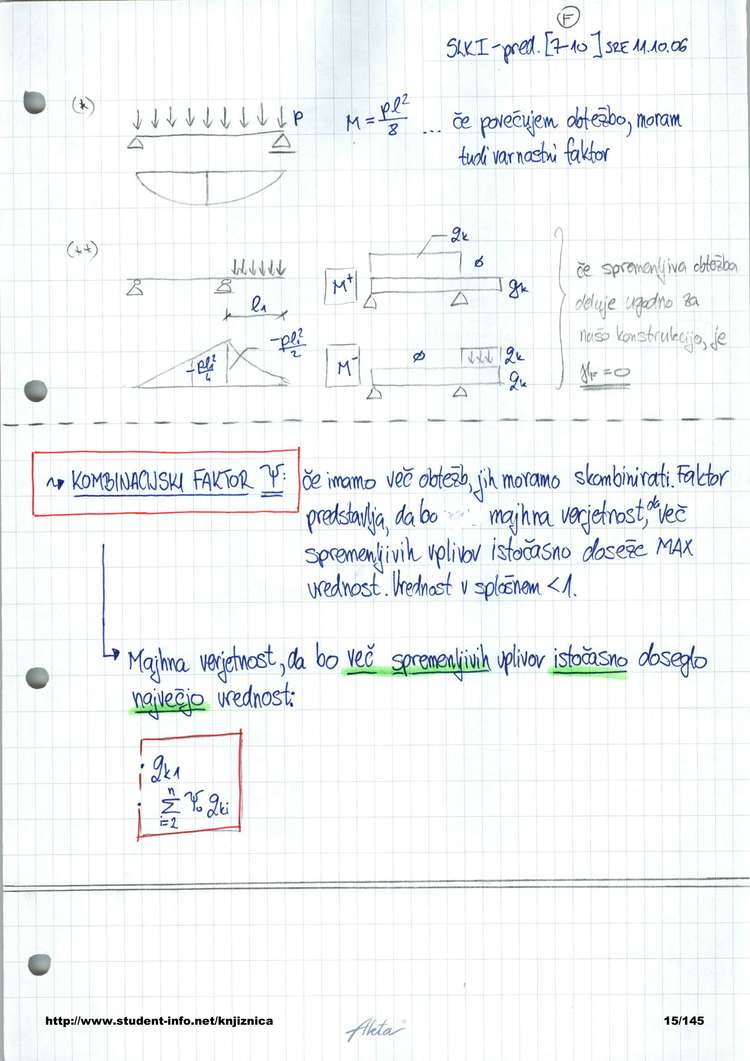 F
SLKI-pred. [7-10] SRE 11.10.06
(*)
p
M = pl²/8 ... če povečujem obtežbo, moram
tudi varnostni faktor
(**)
l₁
-pl₁²/4
-pl₁²/2
M⁺
qk
ø
gk
M⁻
ø
qk
gk
če spremenljiva obtežba
deluje ugodno za
našo konstrukcijo, je
γF = 0
↝ KOMBINACIJSKI FAKTOR Ψ:
če imamo več obtežb, jih moramo skombinirati. Faktor
predstavlja, da bo majhna verjetnost, da več
spremenjivih vplivov istočasno doseže MAX
vrednost. Vrednost v splošnem < 1.
Majhna verjetnost, da bo več spremenjivih vplivov istočasno doseglo
največjo vrednost:
• qk1
• n∑i=2 Ψ₀ qki
http://www.student-info.net/knjiznica
Akta
15/145